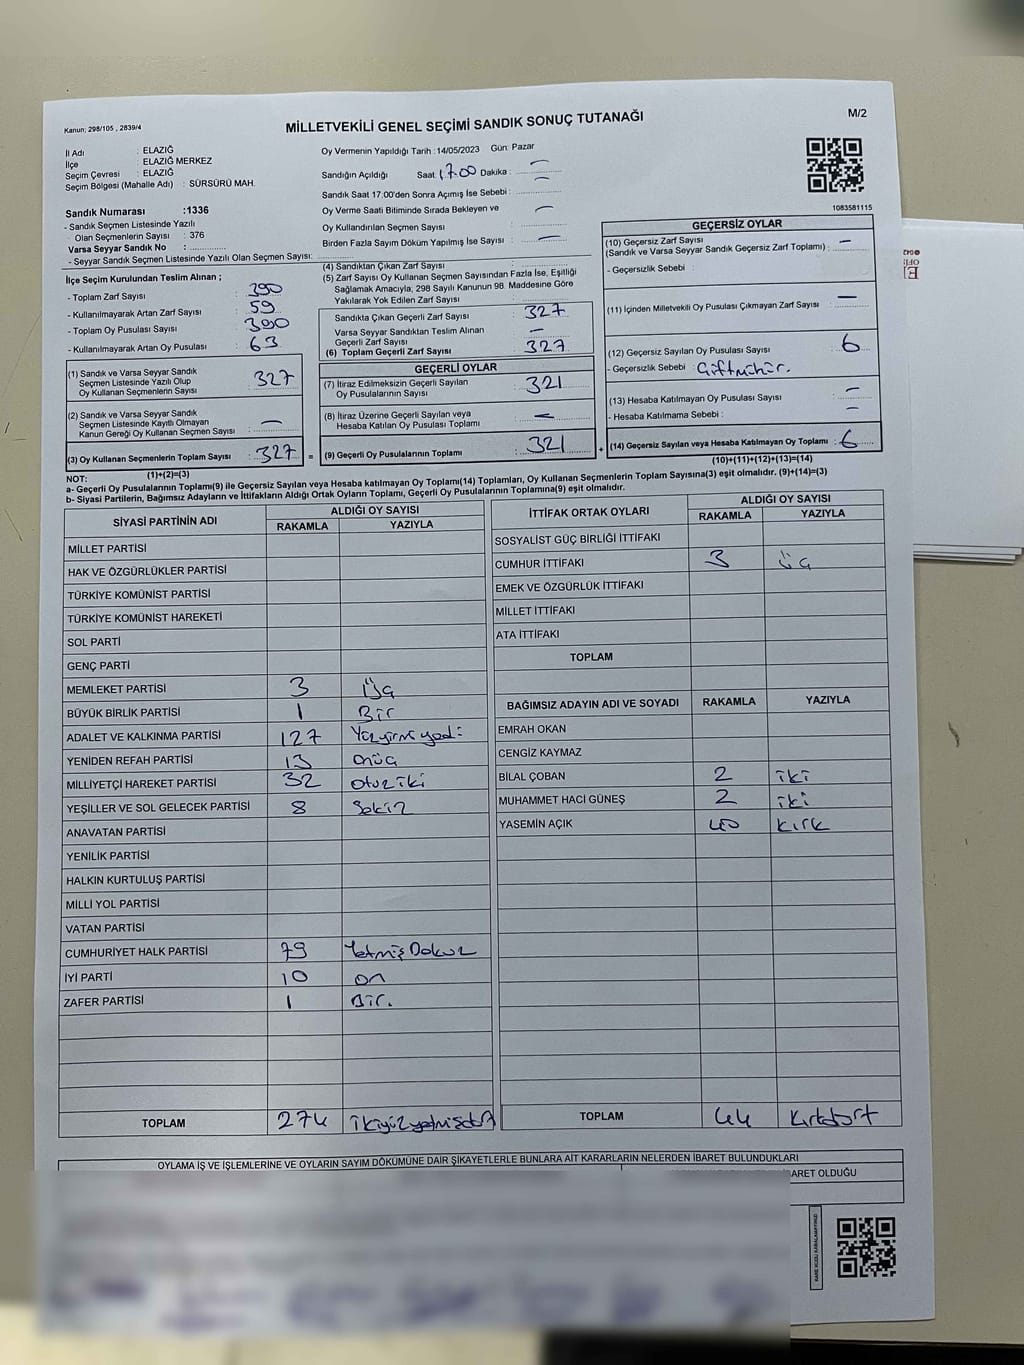 Kanun; 298/105 , 2839/4
MİLLETVEKİLİ GENEL SEÇİMİ SANDIK SONUÇ TUTANAĞI
M/2
İl Adı : ELAZIĞ
İlçe : ELAZIĞ MERKEZ
Seçim Çevresi : ELAZIĞ
Seçim Bölgesi (Mahalle Adı) : SÜRSÜRÜ MAH.
Oy Vermenin Yapıldığı Tarih :14/05/2023 Gün: Pazar
Sandığın Açıldığı Saat: 17.00 Dakika : —
Sandık Saat 17:00'den Sonra Açımış İse Sebebi : —
Oy Verme Saati Bitiminde Sırada Bekleyen ve
Oy Kullandırılan Seçmen Sayısı —
Birden Fazla Sayım Döküm Yapılmış İse Sayısı : —
1083581115
Sandık Numarası :1336
- Sandık Seçmen Listesinde Yazılı
Olan Seçmenlerin Sayısı : 376
Varsa Seyyar Sandık No :
- Seyyar Sandık Seçmen Listesinde Yazılı Olan Seçmen Sayısı:
İlçe Seçim Kurulundan Teslim Alınan ;
- Toplam Zarf Sayısı : 390
- Kullanılmayarak Artan Zarf Sayısı : 59
- Toplam Oy Pusulası Sayısı : 390
- Kullanılmayarak Artan Oy Pusulası : 63
(1) Sandık ve Varsa Seyyar Sandık
Seçmen Listesinde Yazılı Olup
Oy Kullanan Seçmenlerin Sayısı 327
(2) Sandık ve Varsa Seyyar Sandık
Seçmen Listesinde Kayıtlı Olmayan
Kanun Gereği Oy Kullanan Seçmen Sayısı —
(3) Oy Kullanan Seçmenlerin Toplam Sayısı 327 =
(1)+(2)=(3)
(4) Sandıktan Çıkan Zarf Sayısı :
(5) Zarf Sayısı Oy Kullanan Seçmen Sayısından Fazla İse, Eşitliği
Sağlamak Amacıyla; 298 Sayılı Kanunun 98. Maddesine Göre
Yakılarak Yok Edilen Zarf Sayısı :
Sandıkta Çıkan Geçerli Zarf Sayısı : 327
Varsa Seyyar Sandıktan Teslim Alınan
Geçerli Zarf Sayısı : —
(6) Toplam Geçerli Zarf Sayısı : 327
GEÇERLİ OYLAR
(7) İtiraz Edilmeksizin Geçerli Sayılan
Oy Pusulalarının Sayısı : 321
(8) İtiraz Üzerine Geçerli Sayılan veya
Hesaba Katılan Oy Pusulası Toplamı : —
(9) Geçerli Oy Pusulalarının Toplamı : 321 +
GEÇERSİZ OYLAR
(10) Geçersiz Zarf Sayısı
(Sandık ve Varsa Seyyar Sandık Geçersiz Zarf Toplamı) : —
- Geçersizlik Sebebi :
(11) İçinden Milletvekili Oy Pusulası Çıkmayan Zarf Sayısı —
(12) Geçersiz Sayılan Oy Pusulası Sayısı : 6
- Geçersizlik Sebebi : Çift mühür.
(13) Hesaba Katılmayan Oy Pusulası Sayısı : —
- Hesaba Katılmama Sebebi : —
(14) Geçersiz Sayılan veya Hesaba Katılmayan Oy Toplamı : 6
(10)+(11)+(12)+(13)=(14)
NOT:
a- Geçerli Oy Pusulalarının Toplamı(9) ile Geçersiz Sayılan veya Hesaba katılmayan Oy Toplamı(14) Toplamları, Oy Kullanan Seçmenlerin Toplam Sayısına(3) eşit olmalıdır. (9)+(14)=(3)
b- Siyasi Partilerin, Bağımsız Adayların ve İttifakların Aldığı Ortak Oyların Toplamı, Geçerli Oy Pusulalarının Toplamına(9) eşit olmalıdır.
SİYASİ PARTİNİN ADI
ALDIĞI OY SAYISI
RAKAMLA YAZIYLA
MİLLET PARTİSİ
HAK VE ÖZGÜRLÜKLER PARTİSİ
TÜRKİYE KOMÜNİST PARTİSİ
TÜRKİYE KOMÜNİST HAREKETİ
SOL PARTİ
GENÇ PARTİ
MEMLEKET PARTİSİ 3 Üç
BÜYÜK BİRLİK PARTİSİ 1 Bir
ADALET VE KALKINMA PARTİSİ 127 Yüzyirmiyedi
YENİDEN REFAH PARTİSİ 13 onüç
MİLLİYETÇİ HAREKET PARTİSİ 32 otuziki
YEŞİLLER VE SOL GELECEK PARTİSİ 8 Sekiz
ANAVATAN PARTİSİ
YENİLİK PARTİSİ
HALKIN KURTULUŞ PARTİSİ
MİLLİ YOL PARTİSİ
VATAN PARTİSİ
CUMHURİYET HALK PARTİSİ 79 Yetmiş Dokuz
İYİ PARTİ 10 on
ZAFER PARTİSİ 1 Bir.
TOPLAM 274 ikiyüzyetmişdört
İTTİFAK ORTAK OYLARI
ALDIĞI OY SAYISI
RAKAMLA YAZIYLA
SOSYALİST GÜÇ BİRLİĞİ İTTİFAKI
CUMHUR İTTİFAKI 3 üç
EMEK VE ÖZGÜRLÜK İTTİFAKI
MİLLET İTTİFAKI
ATA İTTİFAKI
TOPLAM
BAĞIMSIZ ADAYIN ADI VE SOYADI RAKAMLA YAZIYLA
EMRAH OKAN
CENGİZ KAYMAZ
BİLAL ÇOBAN 2 iki
MUHAMMET HACİ GÜNEŞ 2 iki
YASEMİN AÇIK 40 kırk
TOPLAM 44 kırkdört
OYLAMA İŞ VE İŞLEMLERİNE VE OYLARIN SAYIM DÖKÜMÜNE DAİR ŞİKAYETLERLE BUNLARA AİT KARARLARIN NELERDEN İBARET BULUNDUKLARI
BARET OLDUĞU